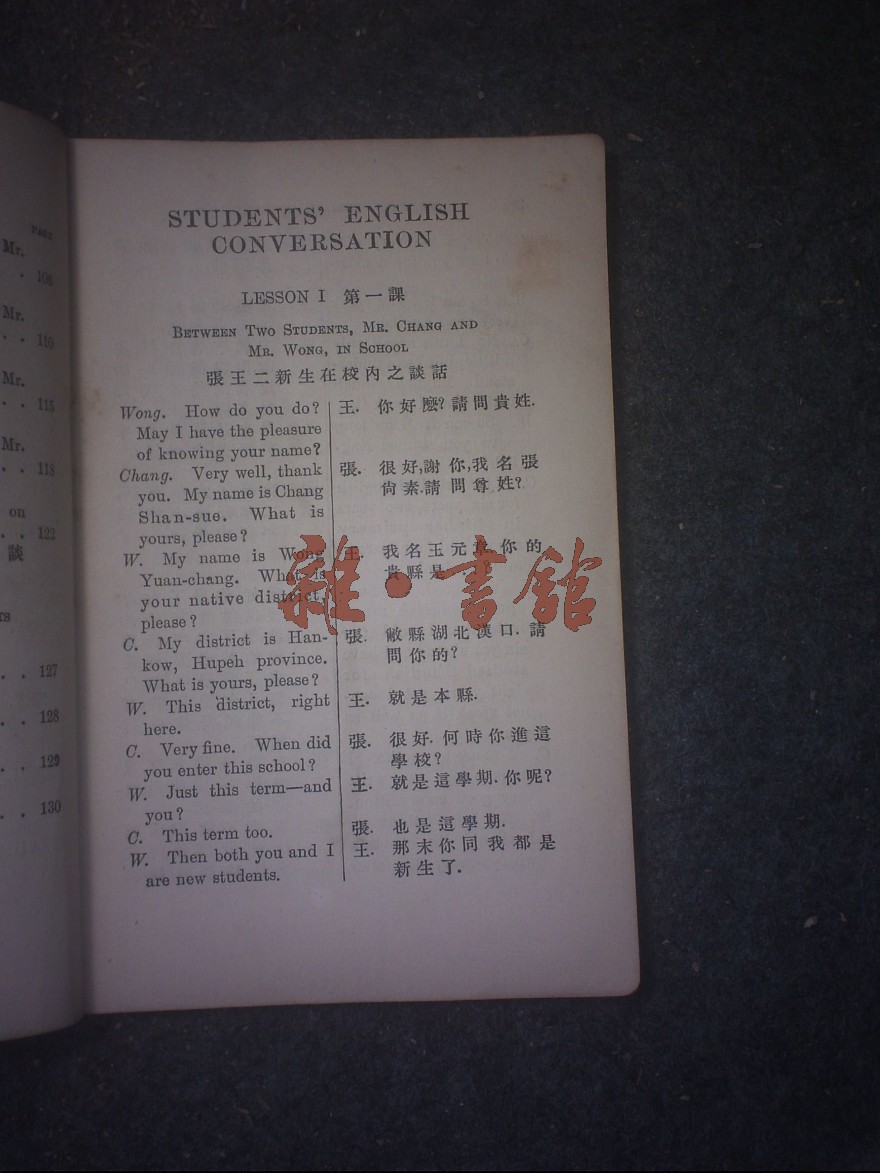 PAGE
Mr.
. 106
Mr.
. . 110
Mr.
. . 115
Mr.
. . 118
on
. . 122
談
. . 127
. . 128
. . 129
. . 130
STUDENTS' ENGLISH
CONVERSATION
LESSON I 第一課
BETWEEN TWO STUDENTS, MR. CHANG AND
MR. WONG, IN SCHOOL
張王二新生在校內之談話
Wong. How do you do?
May I have the pleasure
of knowing your name?
Chang. Very well, thank
you. My name is Chang
Shan-sue. What is
yours, please?
W. My name is Wong
Yuan-chang. What is
your native district,
please?
C. My district is Han-
kow, Hupeh province.
What is yours, please?
W. This district, right
here.
C. Very fine. When did
you enter this school?
W. Just this term—and
you?
C. This term too.
W. Then both you and I
are new students.
王. 你好麽?請問貴姓.
張. 很好,謝你,我名張
尙素.請問尊姓?
王. 我名王元章.你的
貴縣是 ?
張. 敝縣湖北漢口.請
問你的?
王. 就是本縣.
張. 很好.何時你進這
學校?
王. 就是這學期.你呢?
張. 也是這學期.
王. 那末你同我都是
新生了.
雜·書館